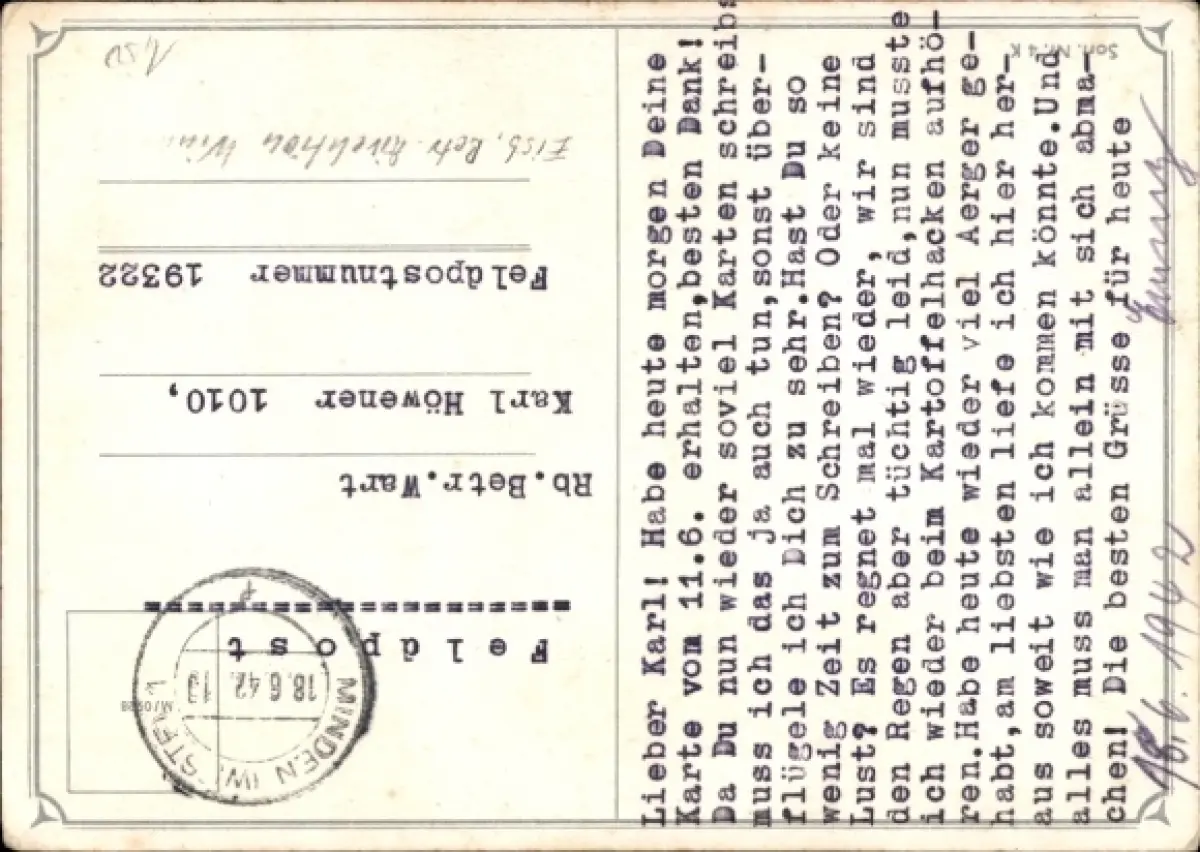 Feldpost
Rb.Betr.Wart
Karl Höwener 1010,
Feldpostnummer 19322
MINDEN (WESTF)
18.6.42. 1
M/0938
1,50
Son. Nr. 4 K
Lieber Karl! Habe heute morgen Deine
Karte vom 11.6. erhalten,besten Dank!
Da Du nun wieder soviel Karten schreibs
muss ich das ja auch tun,sonst über-
flügele ich Dich zu sehr.Hast Du so
wenig Zeit zum Schreiben? Oder keine
Lust? Es regnet mal wieder, wir sind
den Regen aber tüchtig leid,nun musste
ich wieder beim Kartoffelhacken aufhö-
ren.Habe heute wieder viel Aerger ge-
habt,am liebsten liefe ich hier her-
aus soweit wie ich kommen könnte.Und
alles muss man allein mit sich abma-
chen! Die besten Grüsse für heute
18.6.1942